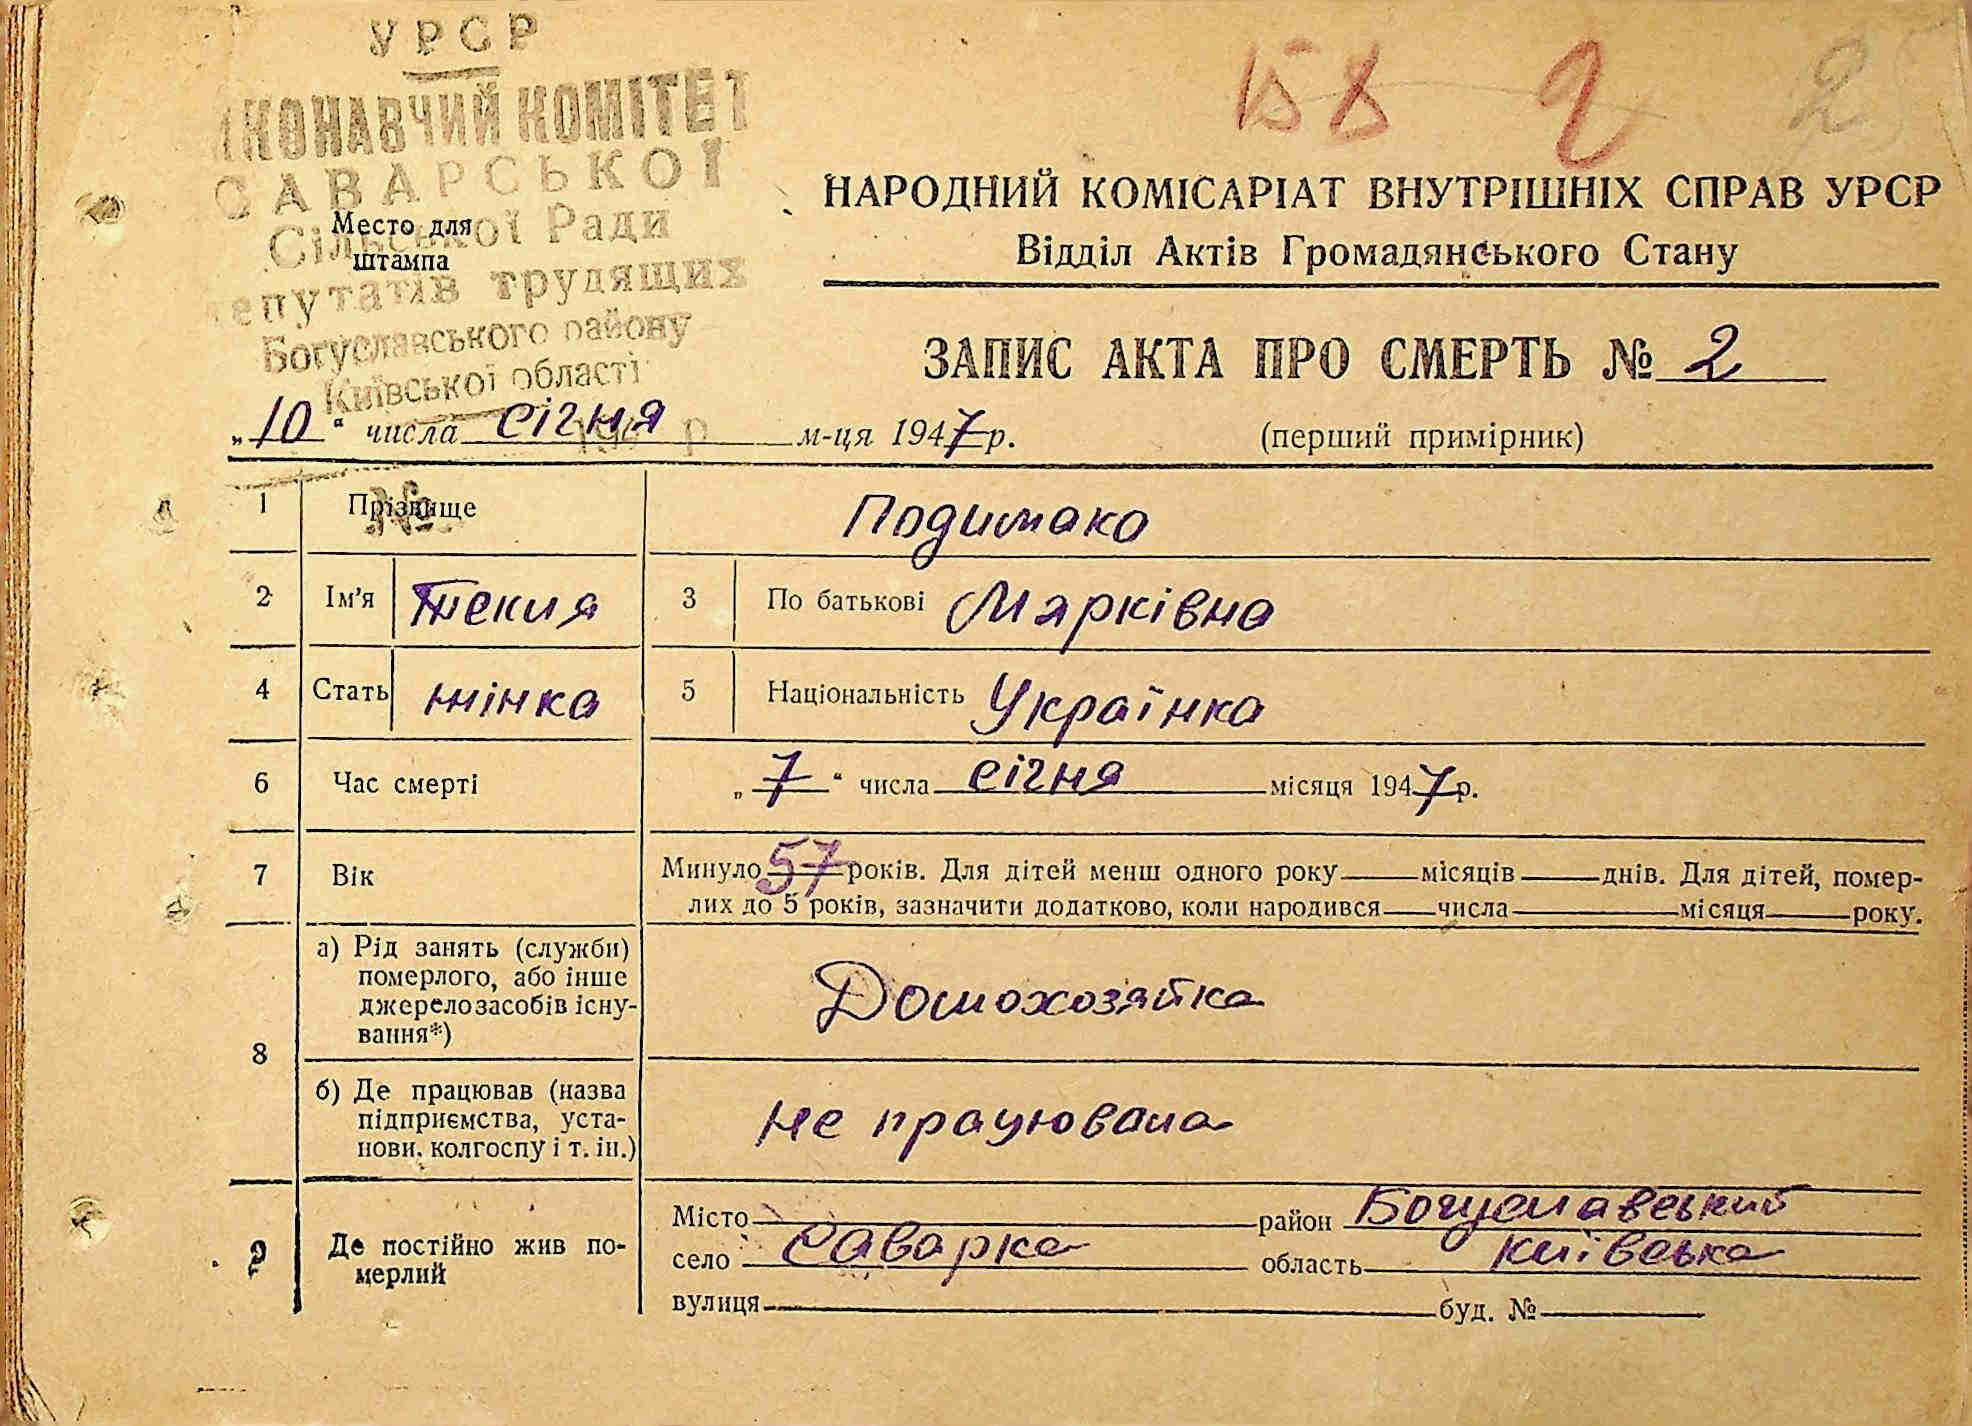 УРСР
ИКОНАВЧИЙ КОМІТЕТ
САВАРСЬКОЇ
Сільської Ради
депутатів трудящих
Богуславського району
Київської області
194 р
№
Место для
штампа
158 2 25
НАРОДНИЙ КОМІСАРІАТ ВНУТРІШНІХ СПРАВ УРСР
Відділ Актів Громадянського Стану
ЗАПИС АКТА ПРО СМЕРТЬ № 2
„10“ числа січня м-ця 1947 р. (перший примірник)
1 Прізвище Подимако
2 Ім'я Текля 3 По батькові Марківна
4 Стать жінка 5 Національність Українка
6 Час смерті „7“ числа січня місяця 1947 р.
7 Вік Минуло 57 років. Для дітей менш одного року місяців днів. Для дітей, помер-
лих до 5 років, зазначити додатково, коли народився числа місяця року.
8 а) Рід занять (служби)
померлого, або інше
джерело засобів існу-
вання*)
Домохозяйка
б) Де працював (назва
підприємства, уста-
нови, колгоспу і т. ін.)
не працювала
9 Де постійно жив по-
мерлий
Місто район Богуславський
село Саварка область Київська
вулиця буд. №